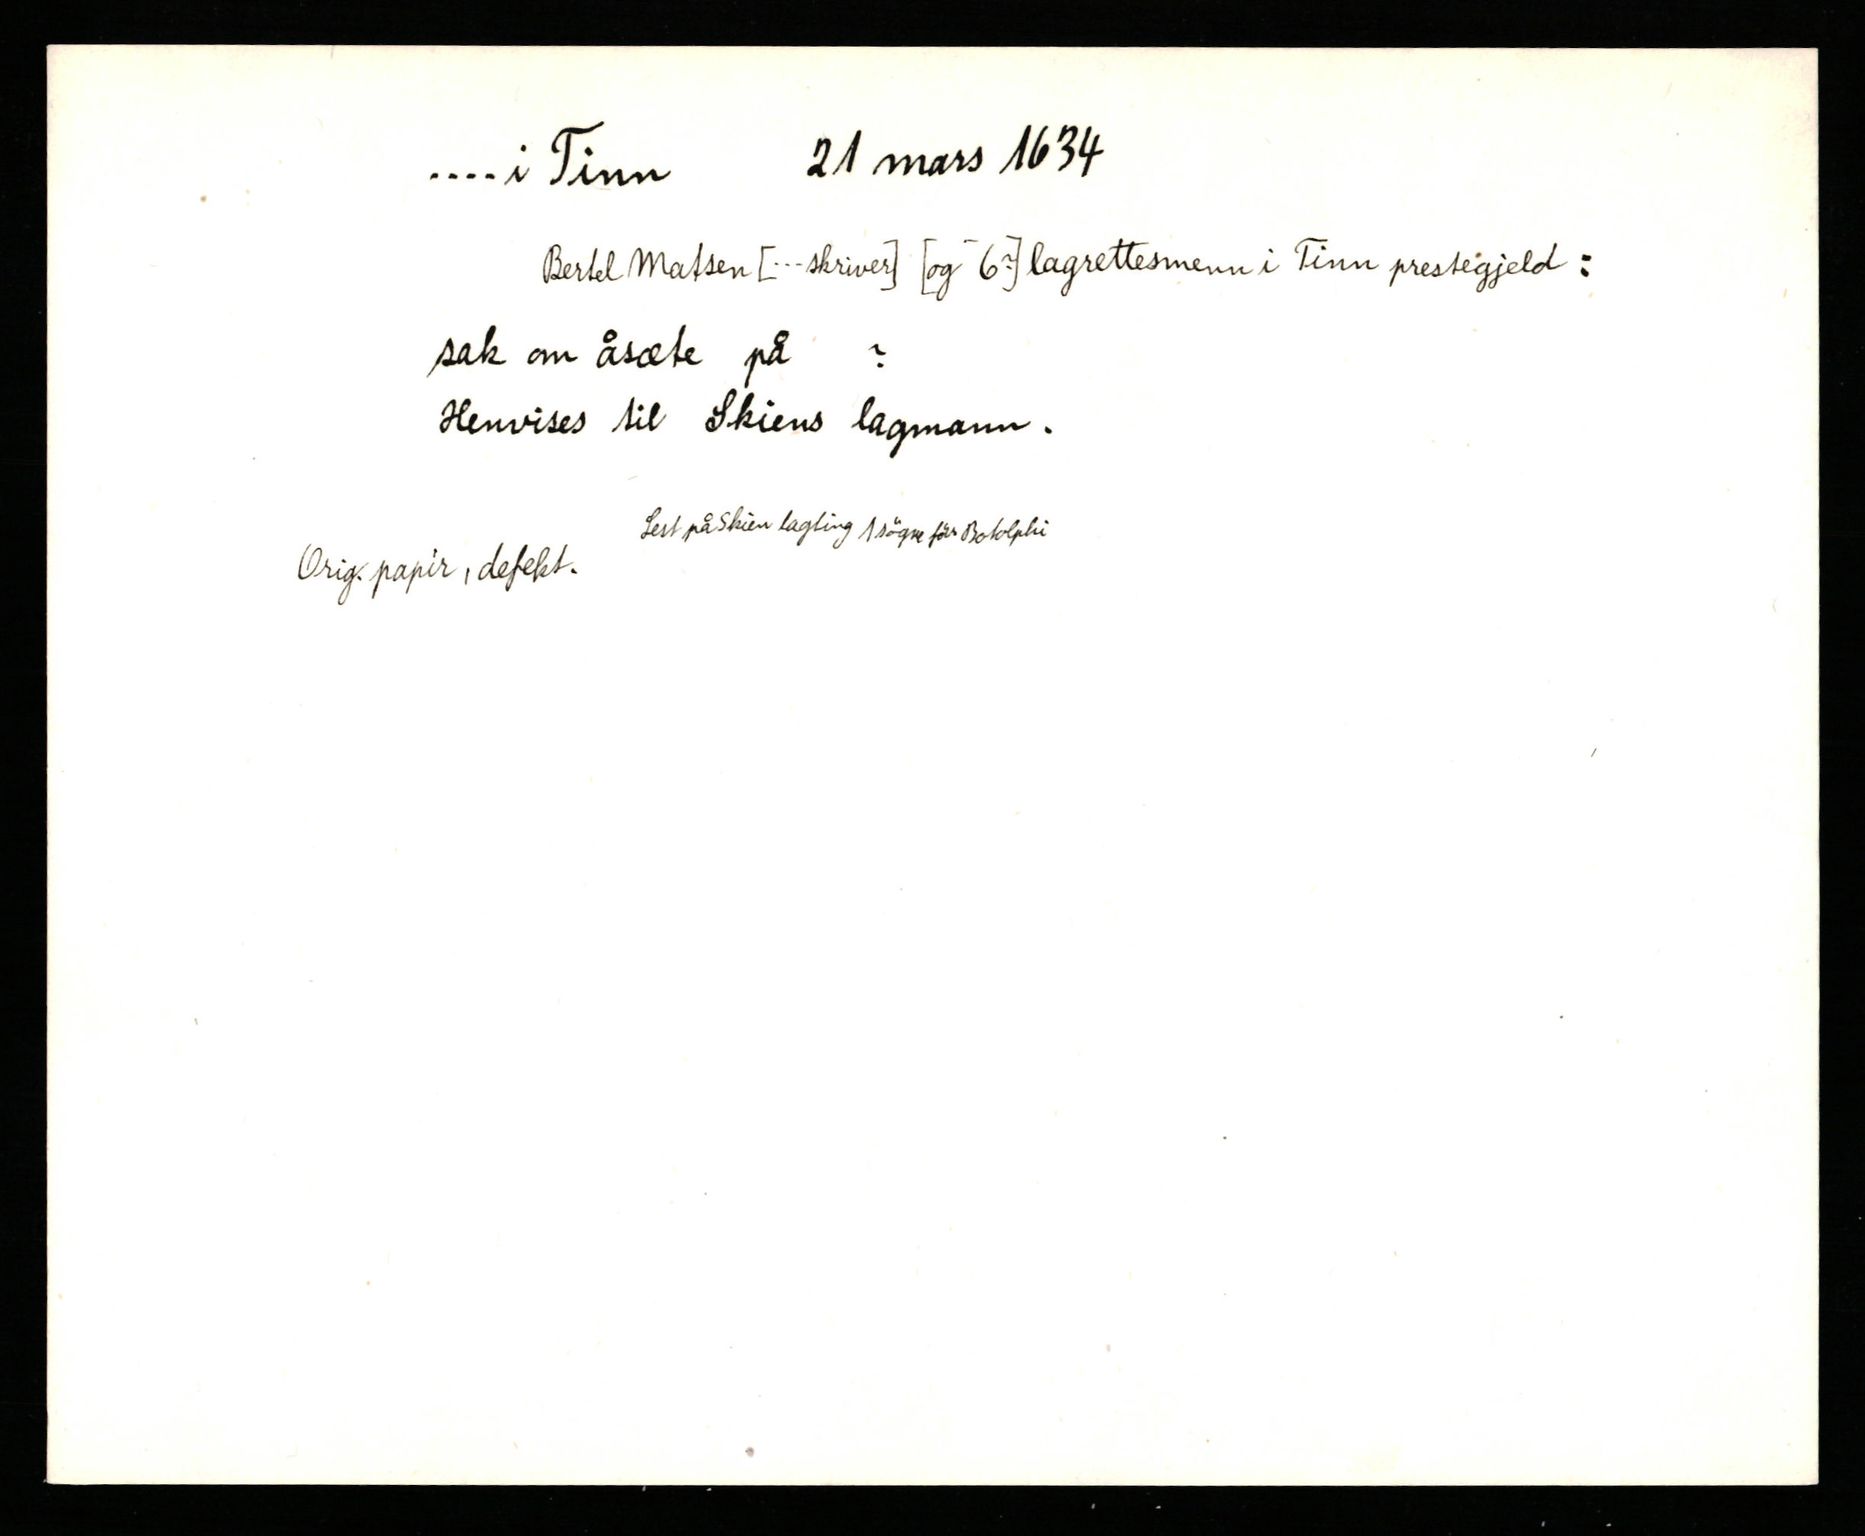 ....i Tinn 21 mars 1634
Bertel Matsen [...skriver] [og 6?] lagrettesmenn i Tinn prestegjeld :
sak om åsæte på ?
Henvises til Skiens lagmann.
Lest på Skien lagting 1 søgne før Botolphi
Orig. papir, defekt.